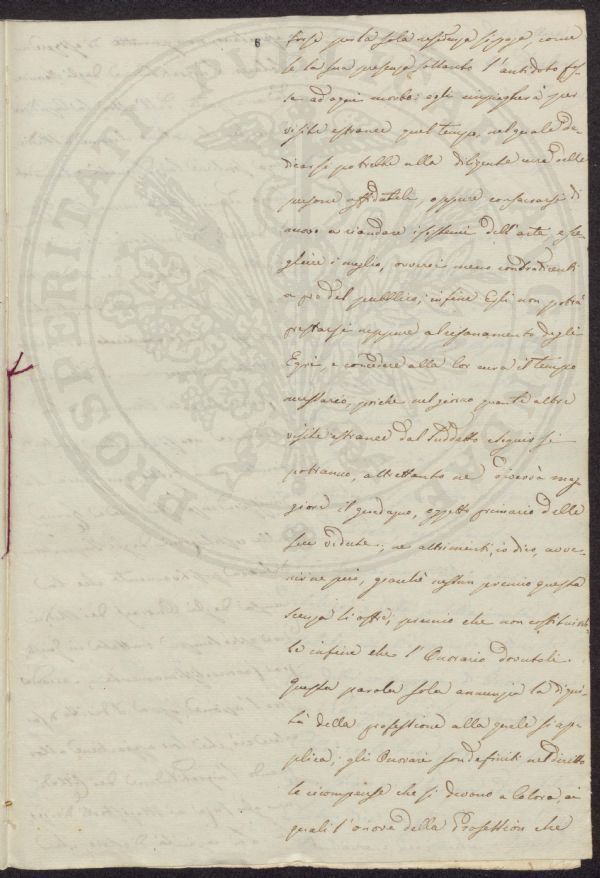 6
forse per la sola residenza si paga, come
se la sua presenza soltanto l'antidoto fos-
se ad ogni morbo: egli impiegherà per
visite estranee quel tempo, nel quale de-
dicarsi potrebbe alla diligente cura delle
persone affidateli, oppure consacrarsi di
nuovo a riandare i sistemi dell'arte, e sce-
gliere i meglio, ovvero i meno contradicenti
a pro del pubblico; infine Egli non potrà
prestarsi neppure al risanamento degli
Egri, e concedere alla lor cura il tempo
necessario, poiché nel giorno quante altre
visite estranee dal suddetto eseguir si
potranno, altrettanto ne mag-
giore il guadagno, oggetto primario delle
sue vedute; ne altrimenti, io dico, avve-
nirne può, giacché nessun premio questa
scienza li offre; premio che non costituireb-
be infine che l'Onorario dovutoli.
Questa parola sola annunzia la digni-
tà della professione alla quale si ap-
plica; gli Onorari son definiti nel diritto
le ricompense che si devono a coloro, ai
quali l'onore della Profession che
PROSPERITATI PUBLICAE